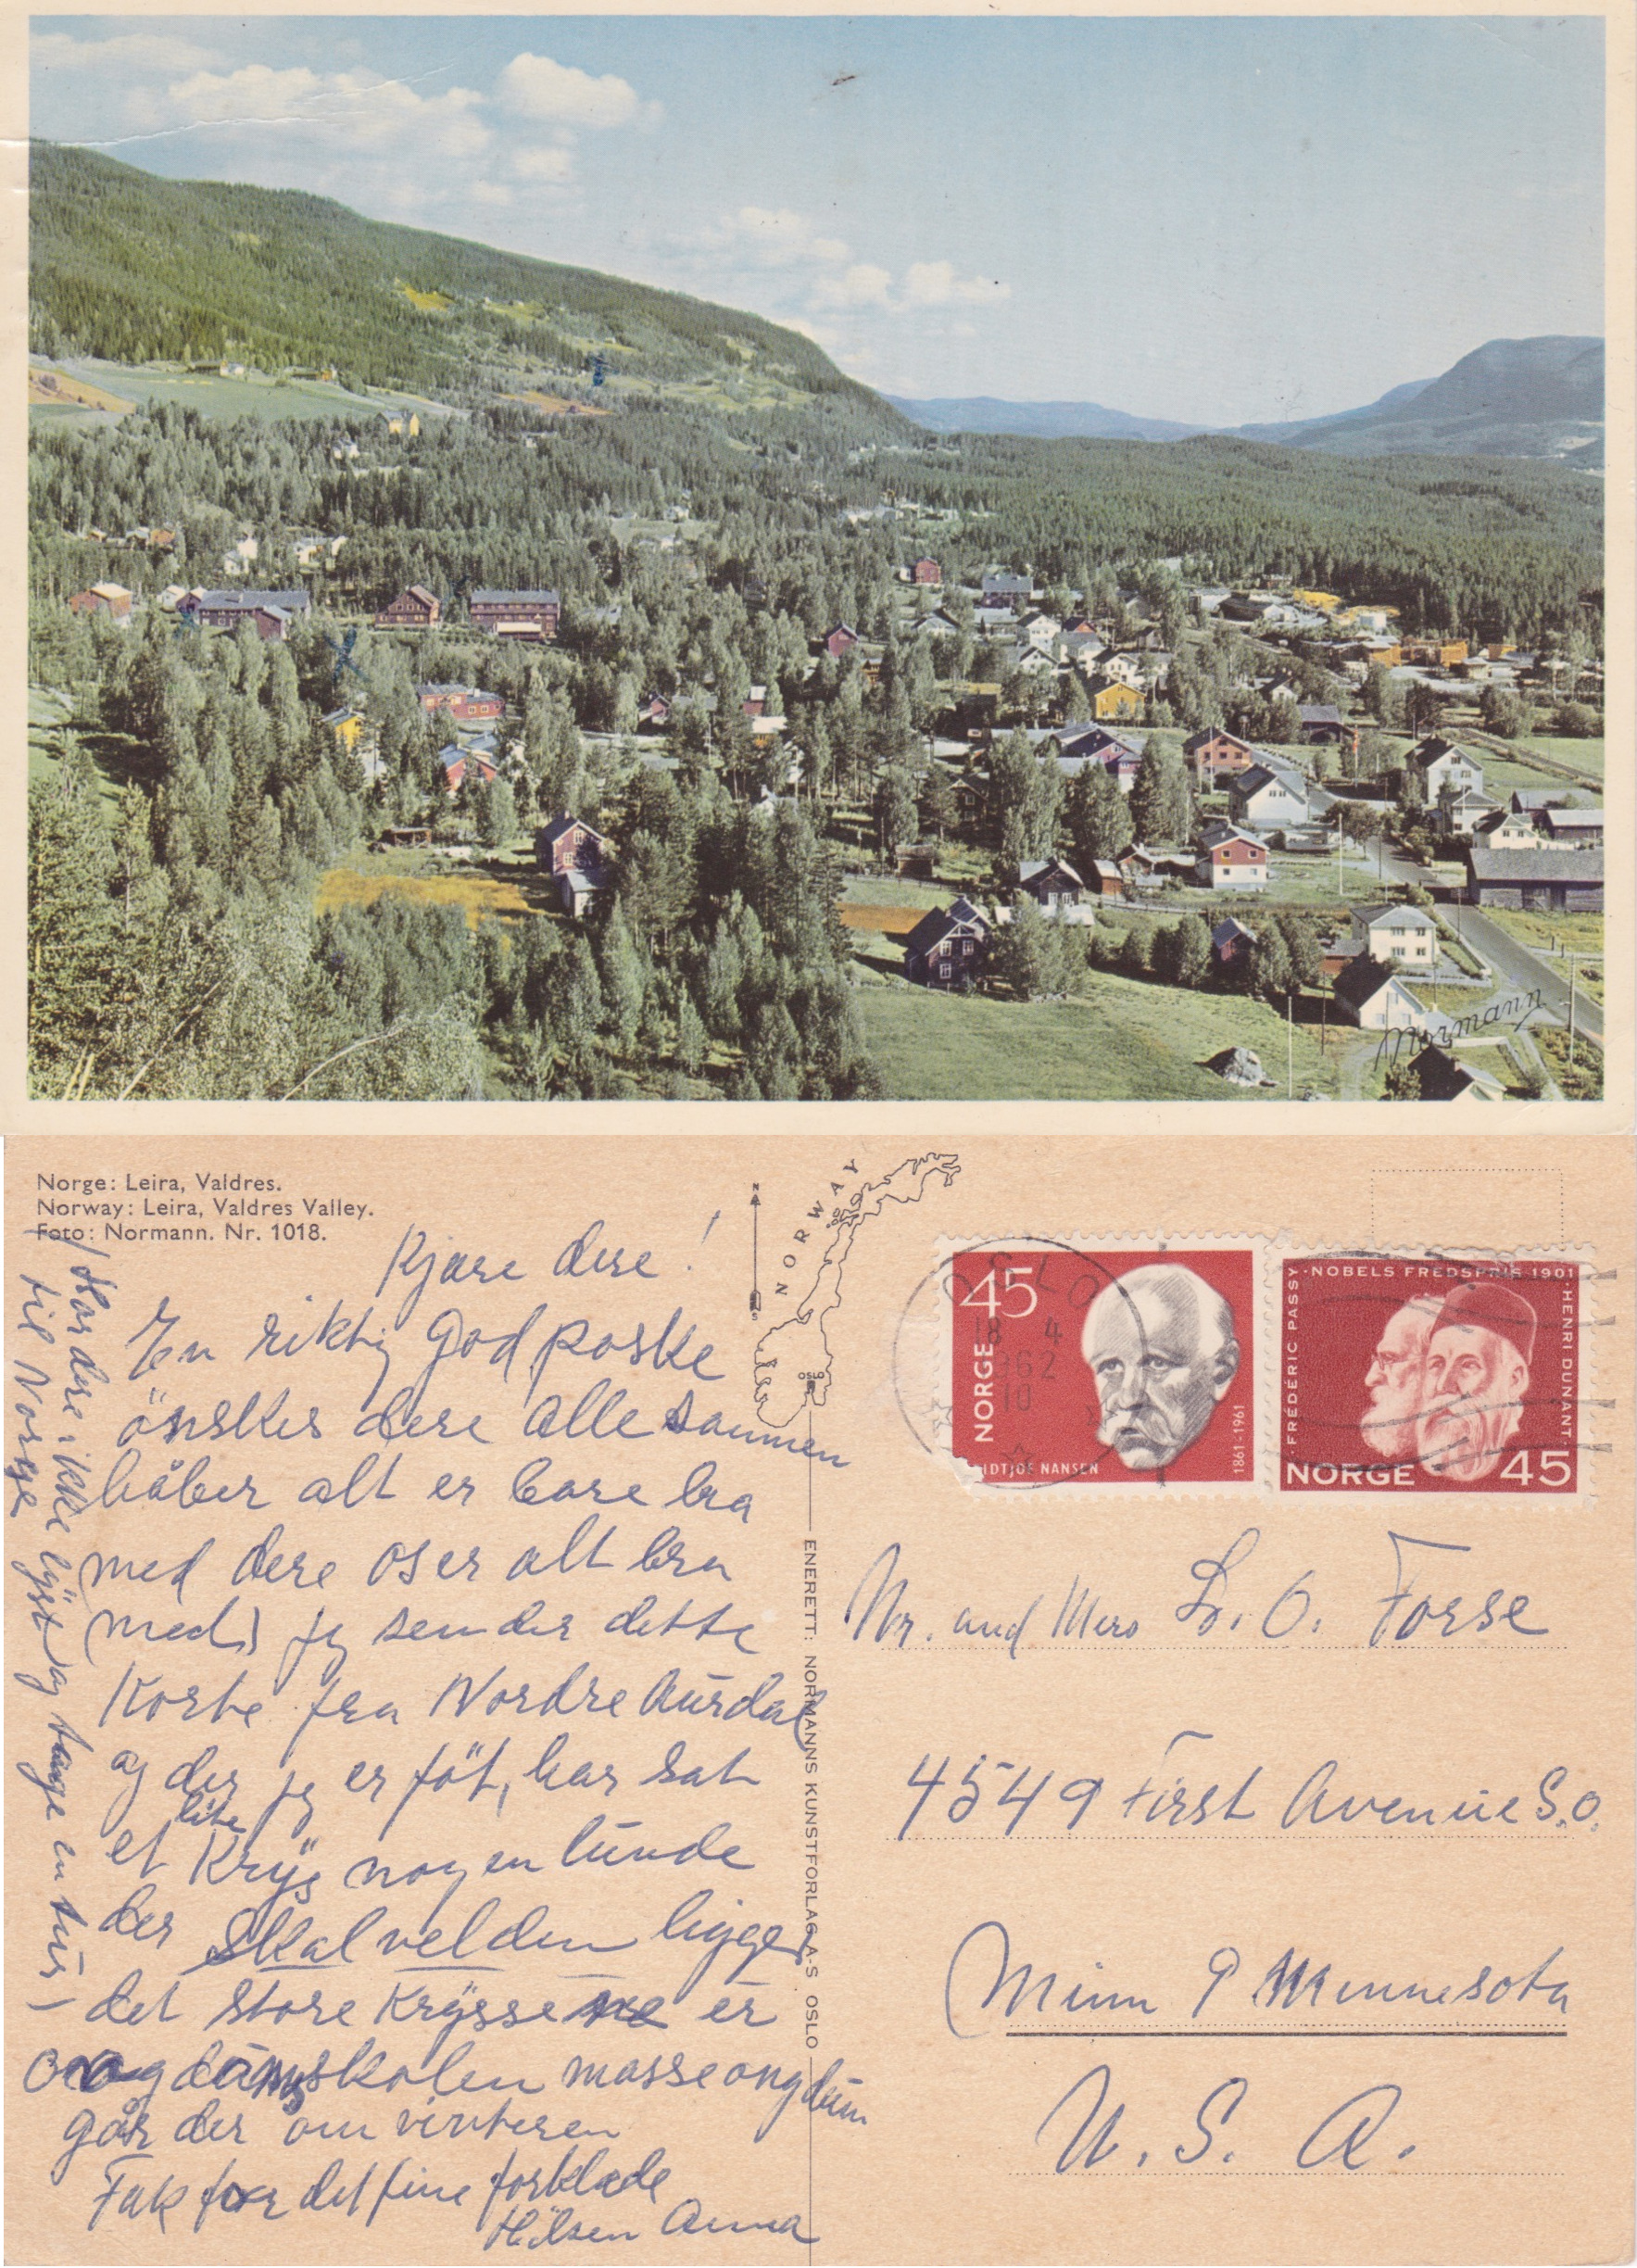 Normann
Norge: Leira, Valdres.
Norway: Leira, Valdres Valley.
Foto: Normann. Nr. 1018.
Kjære dere!
En riktig god påske
önsker dere alle sammen
håber alt er bare bra
med dere os er alt bra
med) jg sender dette
Korte fra Nordre Aurdal
og der jg er föt, har sat
et lite Krys nogen lunde
der Skalvelden ligger
det store Krysse er
ongdomsskolen masse ongdum
går der om vinteren
Tak for det fine forklæde
Hilsen Anna
Har dere ikke lyst og tage en tur
til Norge
N
S
NORWAY
OSLO
ENERETT: NORMANNS KUNSTFORLAG A-S . OSLO
45
NORGE
IDTJOF NANSEN
1861-1961
OSLO
18 4
62
10
·NOBELS FREDSPRIS 1901·
·FRÉDÉRIC PASSY·
HENRI DUNANT·
NORGE 45
Mr. and Mers L. O. Forse
4549 First Avenue S.O.
Minn 9 Minnesota
U. S. A.